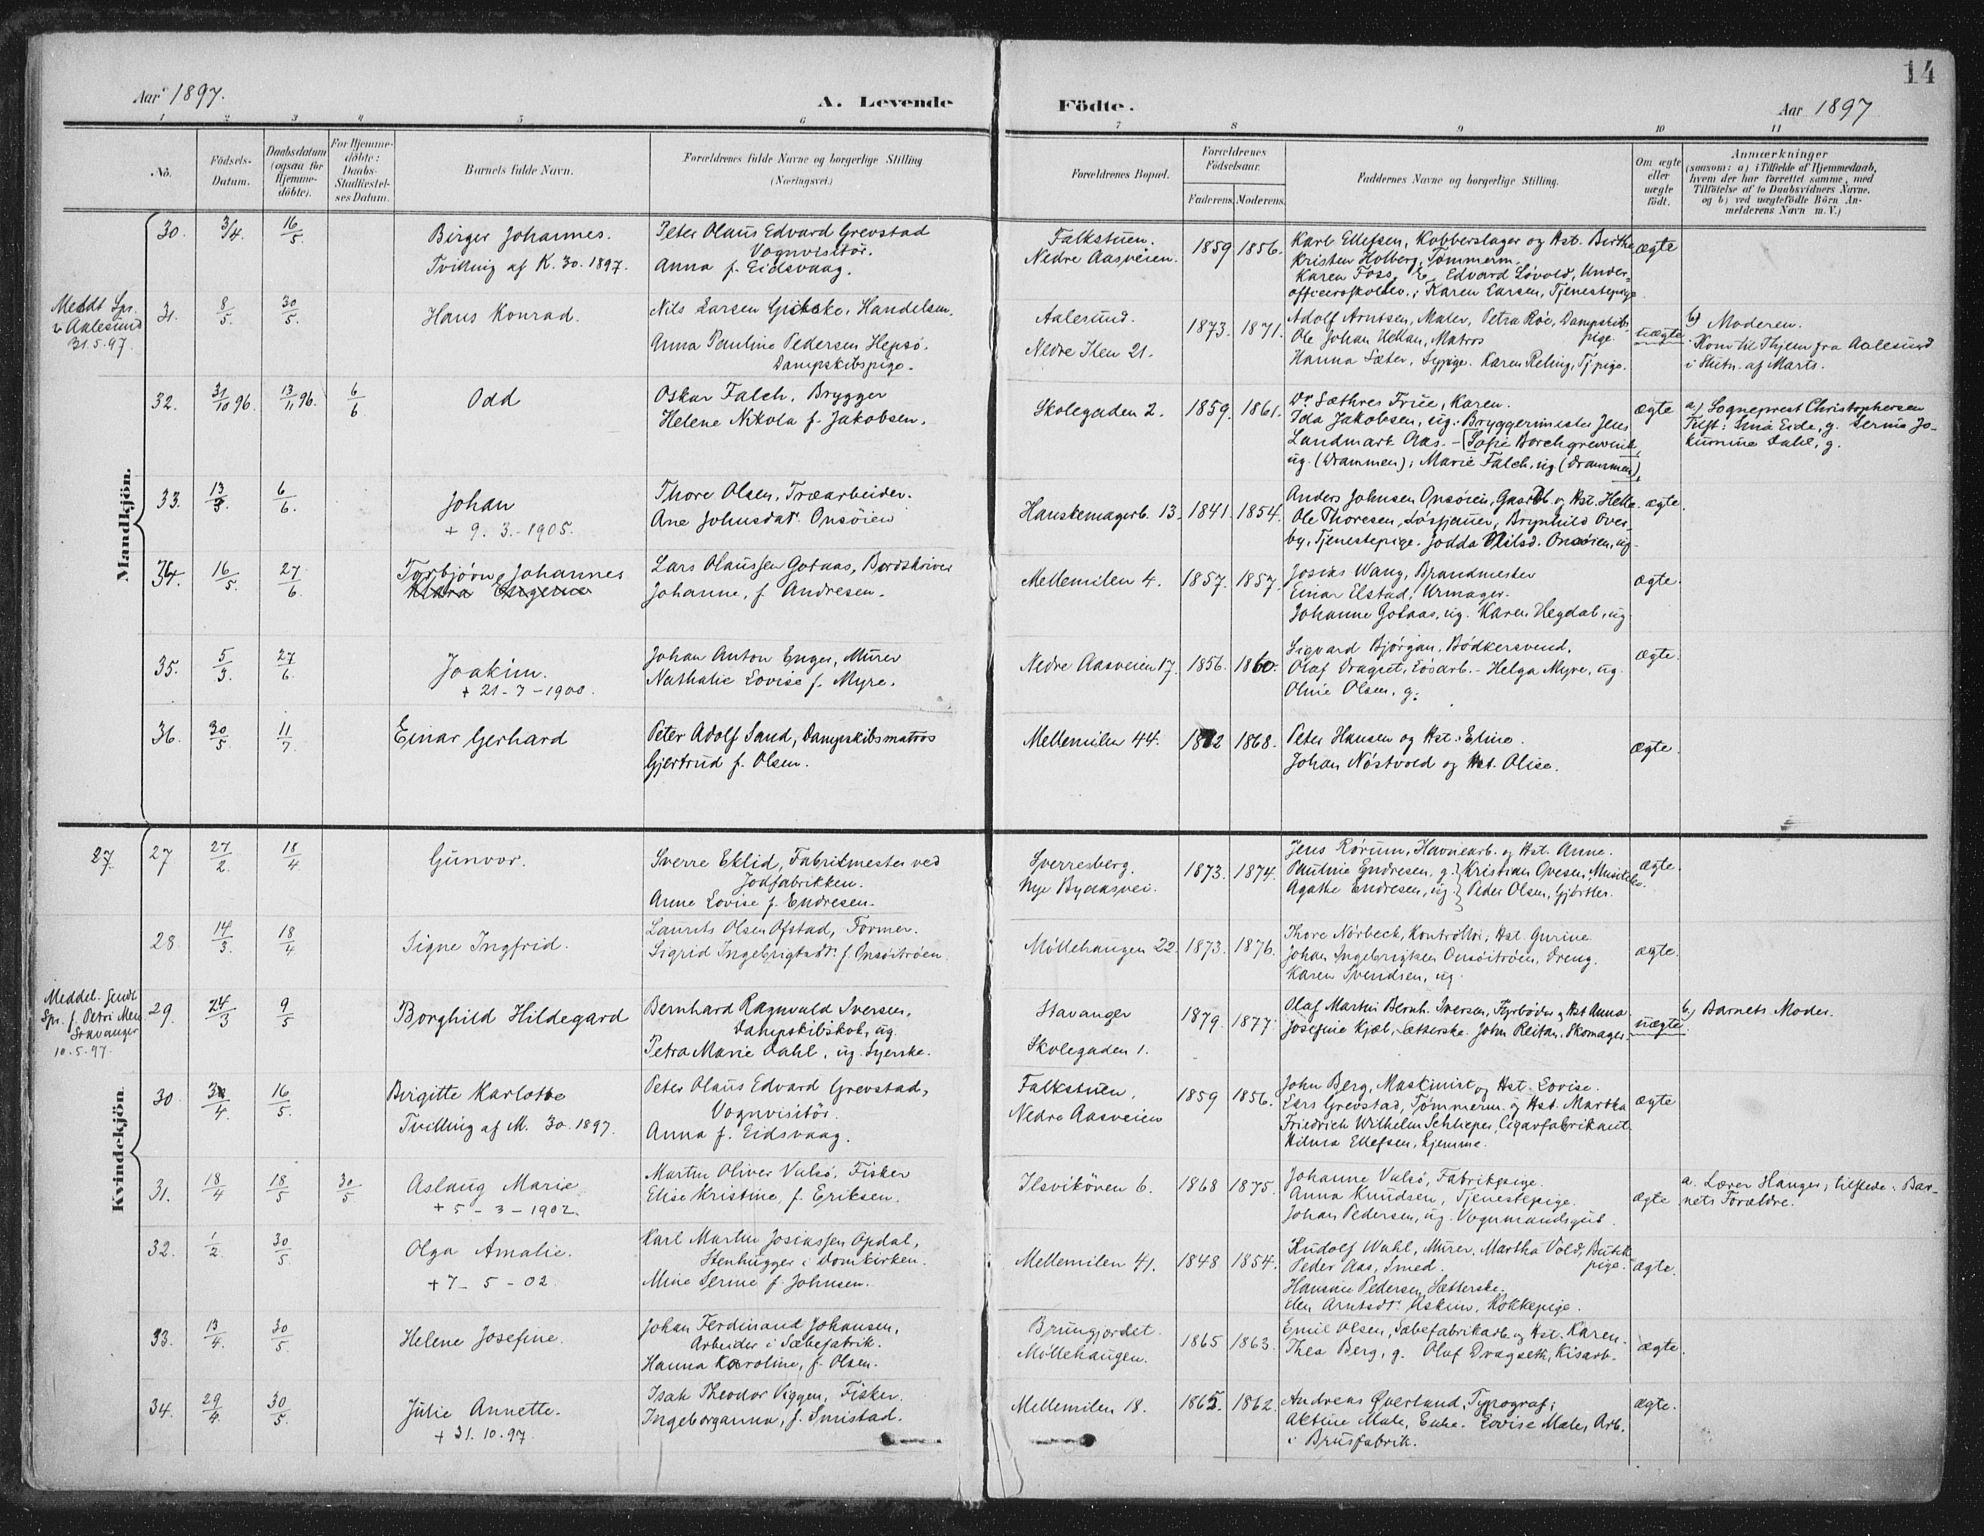 14
Aar 1897.
A. Levende Födte.
Aar 1897
1 2 3 4 5 6 7 8 9 10 11
No.
Födsels-Datum.
Daabsdatum (ogsaa for Hjemme-döbte).
For Hjemme-döbte: Daabs-Stadfæstel-ses Datum.
Barnets fulde Navn.
Forældrenes fulde Navne og borgerlige Stilling
(Næringsvei.)
Forældrenes Bopæl.
Forældrenes Födselsaar.
Faderens. Moderens.
Faddernes Navne og borgerlige Stilling.
Om ægte eller uægte födt.
Anmærkninger
(saasom: a) i Tilfælde af Hjemmedaab,
hvem der har forrettet samme, med
Tilföielse af to Daabsvidners Navne,
og b) ved uægtefödte Börn An-
melderens Navn m. V.)
Mandkjön.
30. 3/4. 16/5
Birger Johannes.
Tvilling af K. 30. 1897.
Peter Olaus Edvard Grevstad
Vognvisitör.
Anna f. Eidsvaag.
Falkstuen.
Nedre Aasveien.
1859 1856.
Karl Ellefsen, Kobberslager og Hst. Birthe
Kristen Holberg, Tømmerm.
Karen Foss, E. Edvard Løvold, Under-
officerskolen; Karen Larsen, Tjenestepige
ægte
Meddt Spr.
i Aalesund
31.5.97.
31. 8/5. 30/5.
Hans Konrad.
Nils Larsen Gjidske, Handelsm.
Anna Pauline Pedersen Hepsö.
Dampskibspige.
Aalesund.
Nedre Ilen 21.
1873. 1871.
Adolf Arntsen, Maler, Petra Röe, Dampskibs-
pige
Ole Johan Hellan, Matros
Hanna Sæter, Sypige. Karen Reling, Tj.pige.
uægte
b) Moderen.
Kom til Thjem fra Aalesund
i Slutn. af Marts.
32. 31/10 96. 13/11 96. 6/6
Odd
Oskar Falch, Brygger
Helene Nikola f. Jakobsen.
Skolegaden 2.
1859. 1861.
Dr. Sæthres Frue, Karen.
Ida Jakobsen, ug. Bryggerimester Jens
Landmark Aas. – Sofie Borchgrevink,
ug. (Drammen); Marie Falch, ug (Drammen),
ægte
a.) Sogneprest Christophersen
Tilst: Sma Eide, g. Serine Jo-
kumine Dahl, g.
33. 13/3. 6/6.
Johan
+ 9. 3. – 1905.
Thore Olsen, Træarbeider.
Ane Johnsdat. Onsöien
Hanskemagerb. 13.
1841. 1854.
Anders Johnsen Onsöien, Gasarb. og Hst. Helle.
Ole Thoresen, Løsfjauer, Brynhild Over-
by, Tjenestepige. Jodda Nilsd. Onsöien, ug.
ægte.
34. 16/5. 27/6.
Torbjørn Johannes
Lars Olaussen Gotaas, Bordskriver
Johanne, f. Andresen.
Mellemilen 4.
1857. 1857.
Josias Wang, Brandmester
Einar Elstad, Urmager.
Johanne Gotaas, ug. Karen Hegdal, ug
ægte
35. 5/3. 27/6.
Joakim.
+ 21 – 7 – 1900.
Johan Anton Enger, Murer
Nathalie Lovise f. Myre.
Nedre Aasveien 17.
1856. 1860.
Sigvard Bjørgan, Bødkersvend,
Olaf Dragset, Løsarb. – Helga Myre, ug.
Oline Olsen, g.
ægte.
36. 30/5 11/7
Einar Gerhard
Peter Adolf Sand, Dampskibsmatros
Gjertrud f. Olsen.
Mellemilen 44.
1872 1868.
Peter Hansen og Hst. Eline.
Johan Nöstvold og Hst. Olise.
ægte.
Kvindekjön.
27. 27 27/2. 18/4
Gunvor.
Sverre Eklid, Fabrikmester ved
Jodfabrikken.
Anne Lovise f. Endresen.
Sverresberg.
Nye Bydasvei.
1873. 1874.
Jens Rørum, Havnearb. og Hst. Anne.
Pauline Endresen, g. Kristian Ovesen, Musiklv.
Agathe Endresen, ug. Peder Olsen, Gjørtler.
ægte.
28 14/3. 18/4
Signe Ingfrid.
Laurits Olsen Ofstad, Former.
Sigrid Ingebrigtsdt. f. Onsöitröen.
Möllehaugen 22.
1873. 1876.
Thore Nörbeck, Kontrollör; Hst. Gurine
Johan Ingebrigtsen Onsöitröien, Dreng.
Karen Svendsen, ug.
ægte.
Meddel. Sendt
Spr. f. Petri Men.
Stavanger
10.5.97.
29. 24/3 9/5
Borghild Hildegard
Bernhard Ragnvald Iversen,
Dampskibskok, ug.
Petra Marie Dahl, ug. Syerske.
Stavanger
Skolegaden 1.
1879. 1877.
Olaf Martin Bernh. Iversen, Fyrbøder og Hst Anna
Josefine Kjæl, Sætterske. John Reitan, Skomager.
uægte
b.) Barnets Moder.
30. 3/4 16/5.
Birgitte Karlotte
Tvilling af M. 30. 1897.
Peter Olaus Edvard Grevstad,
Vognvisitör.
Anna f. Eidsvaag.
Falkstuen,
Nedre Aasveien
1859 1856.
John Berg, Maskinist og Hst. Lovise.
Lars Grevstad, Tømmerm. og Hst. Martha
Friedrich Wilhelm Schlieper, Cigarfabrikant
Hilma Ellefsen, hjemme.
ægte
31. 18/4 18/5 30/5
Aslaug Marie
+ 5 – 3 – 1902.
Martin Oliver Valsö, Fisker
Elise Kristine, f. Eriksen.
Ilsvikören 6.
1868 1875.
Johanne Valsö, Fabrikpige.
Anna Knudsen, Tjenestepige.
Johan Pedersen, ug. Vognmandsgut.
ægte
a. Lærer Hanger; tilstede: Bar-
nets Forældre.
32. 1/2 30/5.
Olga Amalie.
+ 7 – 5 – 02.
Karl Martin Josiassen Opdal,
Stenhugger i Domkirken.
Mine Serine f. Johnsen.
Mellemilen 41.
1848 1854.
Rudolf Wahl, Murer, Martha Vold, Butik-
pige.
Peder Aas, Smed.
Hansine Pedersen, Sætterske.
Elen Arntsdt. Askim, Kokkepige.
ægte.
33. 13/4. 30/5.
Helene Josefine.
Johan Ferdinand Johansen,
Arbeider i Sæbefabrik.
Hanna Karoline, f. Olsen.
Brungjordet.
Möllehaugen.
1865 1863.
Emil Olsen, Sæbefabrikarb og Hst. Karen.
Thea Berg, g. Olaf Dragseth, Kisarb.
ægte.
34. 29/4. 30/5.
Julie Annette.
+ 31. 10. 97.
Isak Theodor Viggen, Fisker.
Ingeborganna, f. Smistad.
Mellemilen 18.
1865. 1862.
Andreas Øverland, Typograf;
Aktine Male, Enke. Lovise Male, Arb.
i Brusfabrik.
ægte.